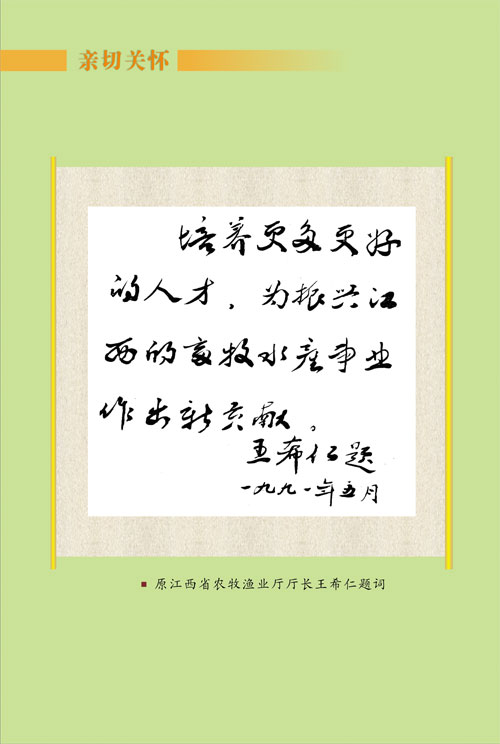 亲切关怀
培养更多更好
的人才，为振兴江
西的畜牧水产事业
作出新贡献。
王希仁题
一九九一年五月
原江西省农牧渔业厅厅长王希仁题词